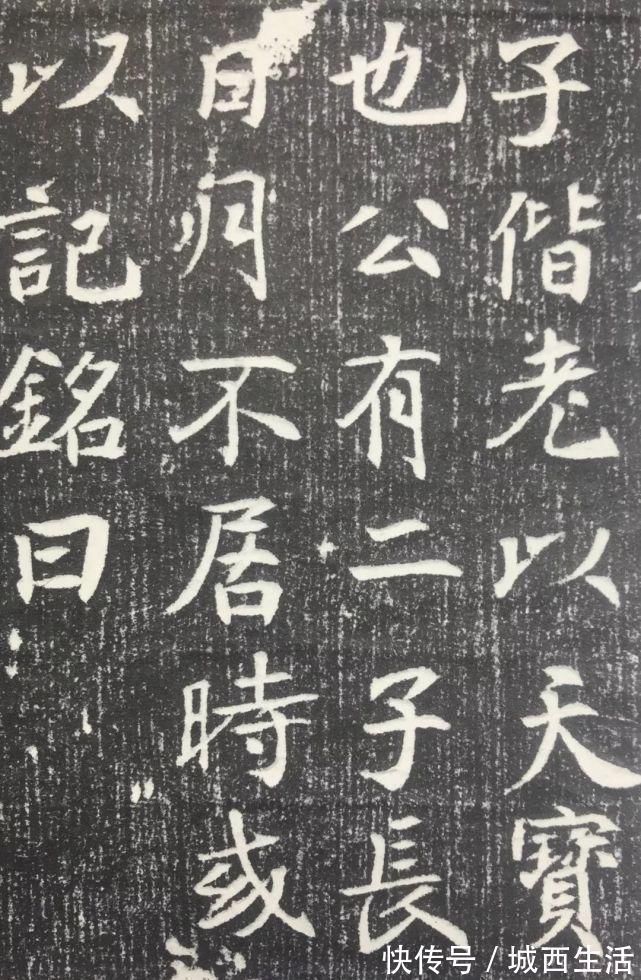 子偕老以天寶
也公有二子長
日月不居時或
以記銘曰
快传号／城西生活